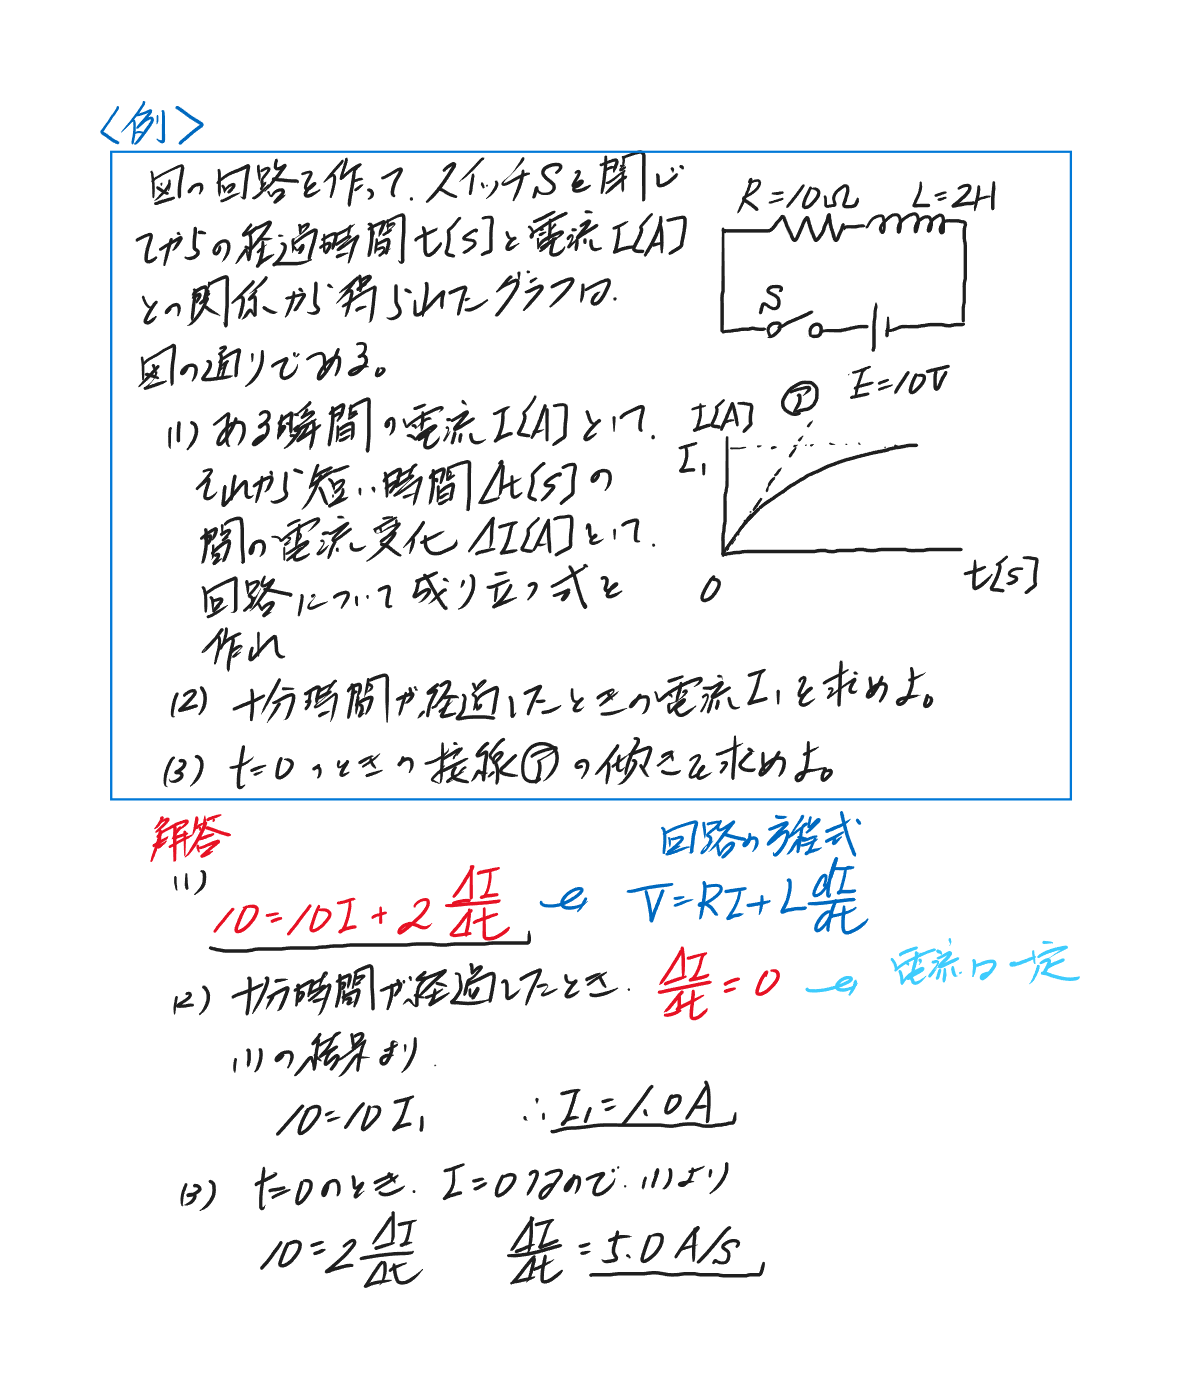 〈例〉
図の回路を作って、スイッチSを閉じ
てからの経過時間t[s]と電流I[A]
との関係から得られたグラフは、
図の通りである。
(1) ある瞬間の電流I[A]として、
それから短い時間Δt[s]の
間の電流変化ΔI[A]として、
回路について成り立つ式を
作れ
(2) 十分時間が経過したときの電流I₁を求めよ。
(3) t=0のときの接線①の傾きを求めよ。
R=10Ω L=2H
S
E=10V
I[A] ①
I₁
0 t[s]
解答
(1)
10=10I+2 ΔI/Δt
回路の方程式
V=RI+L dI/dt
(2) 十分時間が経過したとき、 ΔI/Δt=0 電流は一定
(1)の結果より
10=10I₁ ∴I₁=1.0A
(3) t=0のとき、I=0なので、(1)より
10=2 ΔI/Δt ΔI/Δt=5.0A/s